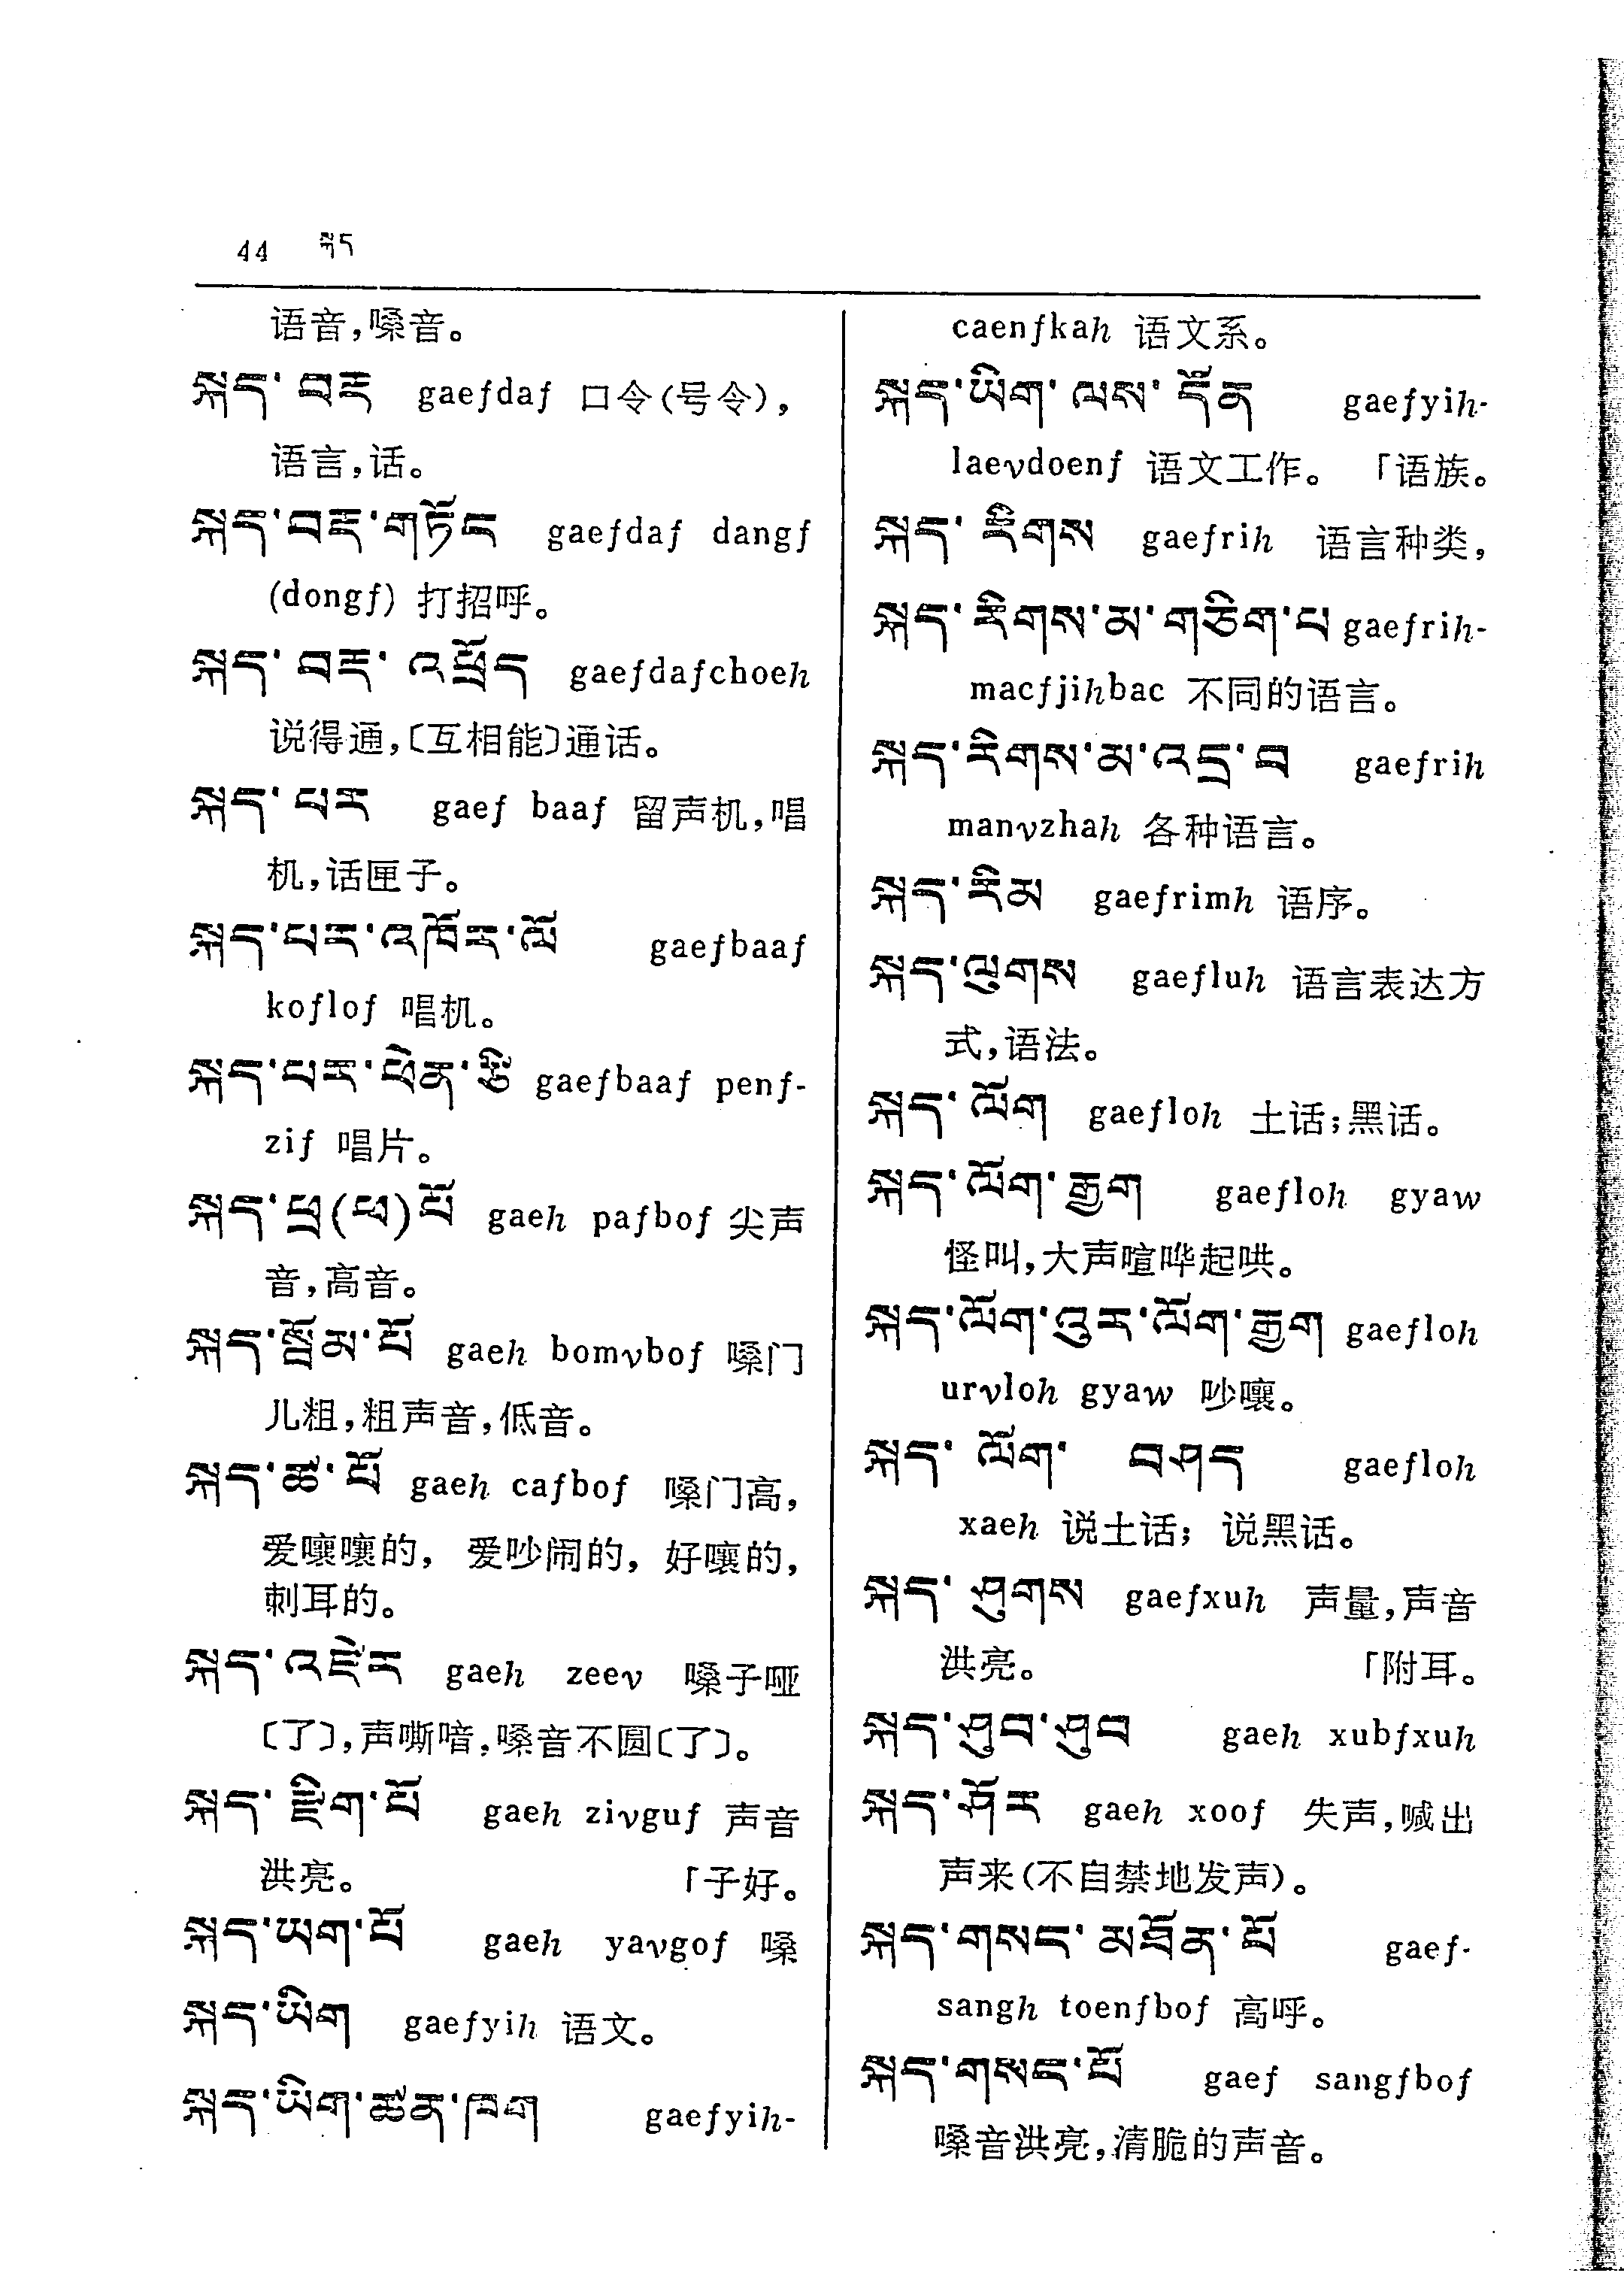 44 སྐད
语音,嗓音。
སྐད་བརྡ gaefdaf 口令(号令),
语言,话。
སྐད་བརྡ་གཏོང gaefdaf dangf
(dongf) 打招呼。
སྐད་བརྡ་འཕྲོད gaefdafchoeh
说得通,〔互相能〕通话。
སྐད་པར gaef baaf 留声机,唱
机,话匣子。
སྐད་པར་འཁོར་ལོ gaefbaaf
koflof 唱机。
སྐད་པར་ཕེན་ཙི gaefbaaf penf-
zif 唱片。
སྐད་ཕྲ(ཕ)པོ gaeh pafbof 尖声
音,高音。
སྐད་སྦོམ་པོ gaeh bomvbof 嗓门
儿粗,粗声音,低音。
སྐད་ཚ་པོ gaeh cafbof 嗓门高,
爱嚷嚷的, 爱吵闹的, 好嚷的,
刺耳的。
སྐད་འཛེར gaeh zeev 嗓子哑
〔了〕,声嘶喑,嗓音不圆〔了〕。
སྐད་རྫིག་པོ gaeh zivguf 声音
洪亮。 「子好。
སྐད་ཡག་པོ gaeh yavgof 嗓
སྐད་ཡིག gaefyih 语文。
སྐད་ཡིག་ཚན་ཁག gaefyih-
caenfkah 语文系。
སྐད་ཡིག་ལས་དོན gaefyih-
laevdoenf 语文工作。 「语族。
སྐད་རིགས gaefrih 语言种类,
སྐད་རིགས་མ་གཅིག་པ gaefrih-
macfjihbac 不同的语言。
སྐད་རིགས་མ་འདྲ་བ gaefrih
manvzhah 各种语言。
སྐད་རིམ gaefrimh 语序。
སྐད་ལུགས gaefluh 语言表达方
式,语法。
སྐད་ལོག gaefloh 土话;黑话。
སྐད་ལོག་རྒྱག gaefloh gyaw
怪叫,大声喧哗起哄。
སྐད་ལོག་འུར་ལོག་རྒྱག gaefloh
urvloh gyaw 吵嚷。
སྐད་ལོག་བཤད gaefloh
xaeh 说土话; 说黑话。
སྐད་ཤུགས gaefxuh 声量,声音
洪亮。 「附耳。
སྐད་ཤུབ་ཤུབ gaeh xubfxuh
སྐད་ཤོར gaeh xoof 失声,喊出
声来(不自禁地发声)。
སྐད་གསང་མཐོན་པོ gaef-
sangh toenfbof 高呼。
སྐད་གསང་པོ gaef sangfbof
嗓音洪亮,清脆的声音。